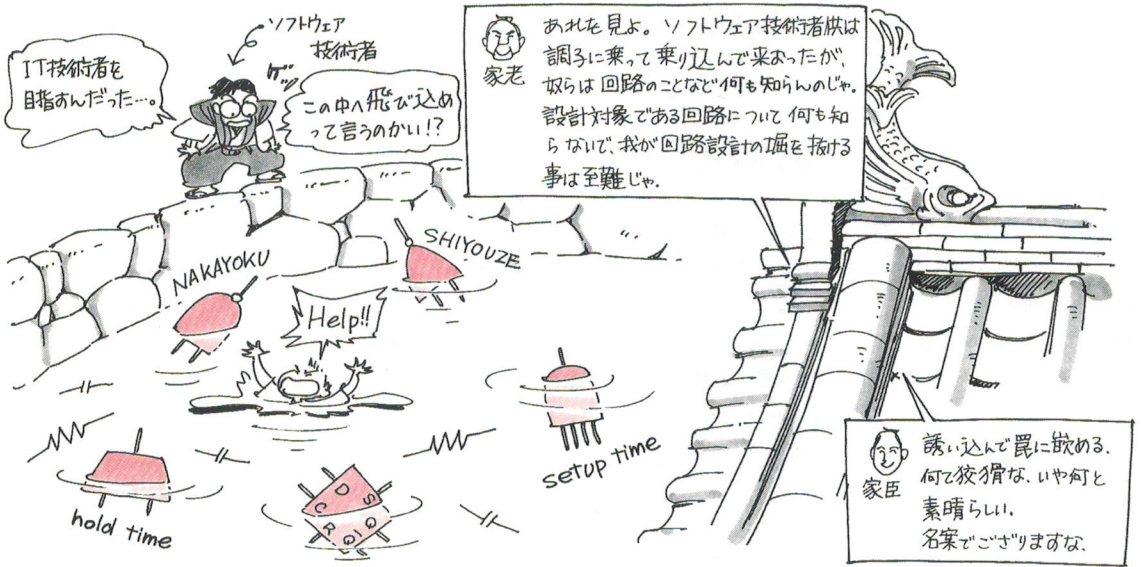 ソフトウェア
技術者
IT技術者を
目指すんだった…。
ゲッ
この中へ飛び込め
って言うのかい!?
家老
あれを見よ。ソフトウェア技術者供は
調子に乗って乗り込んで来おったが、
奴らは回路のことなど何も知らんのじゃ。
設計対象である回路について何も知
らないで、我が回路設計の堀を抜ける
事は至難じゃ。
NAKAYOKU
SHIYOUZE
Help!!
setup time
hold time
D S
C R Q Q
家臣
誘い込んで罠に嵌める。
何て狡猾な、いや何と
素晴らしい。
名案でござりますな。